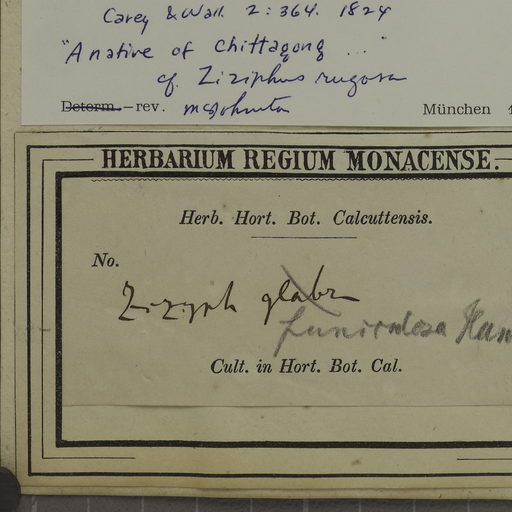 Carey & Wall. 2: 364. 1824
"A native of Chittagong ..."
cf. Ziziphus rugosa
Determ.—rev. M C Johnston München 1
HERBARIUM REGIUM MONACENSE.
Herb. Hort. Bot. Calcuttensis.
No.
Zizyph glabra
funiculosa Ham
Cult. in Hort. Bot. Cal.